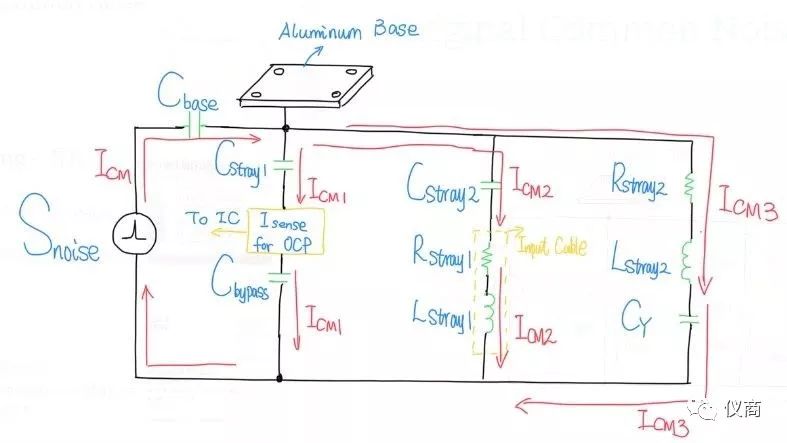 Aluminum Base
Cbase
ICM
Snoise
Cstray1
ICM1
To IC
Isense
for OCP
Cbypass
ICM1
Cstray2
ICM2
Input Cable
Rstray1
Lstray1
ICM2
Rstray2
ICM3
Lstray2
CY
ICM3
仪商